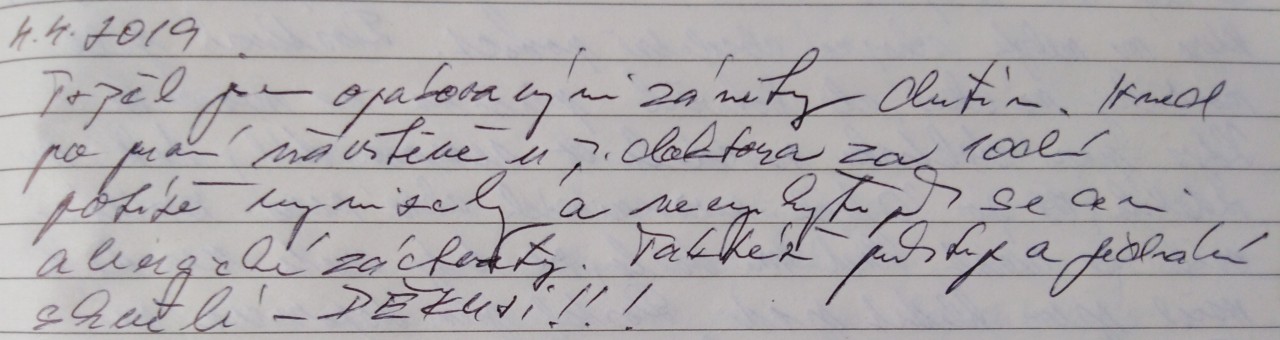 4.4.2019
Trpěl jsem opakovanými záněty dutin. Hned
po první návštěvě u p. doktora za 10 dní
potíže vymizely a nevyskytují se ani
alergické záchvaty. Taktéž postup a jednání
skvělé – DĚKUJI!!!